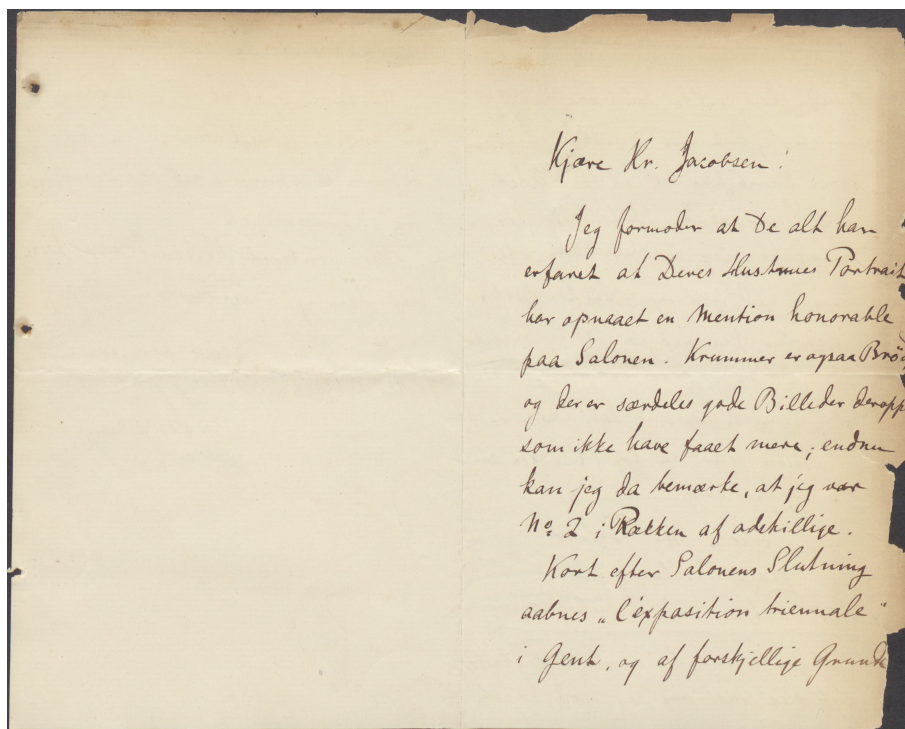 Kjære Hr. Jacobsen!
Jeg formoder at De alt har
erfaret at Deres Hustrues Portrait
har opnaaet en Mention honorable
paa Salonen. Krummer er ogsaa Brø
og der er særdeles gode Billeder deropp
som ikke have faaet mere; endnu
kan jeg da bemærke, at jeg var
No. 2 i Rækken af adskillige.
Kort efter Salonens Slutning
aabnes „l'exposition triennale"
i Gent, og af forskjellige Grunde